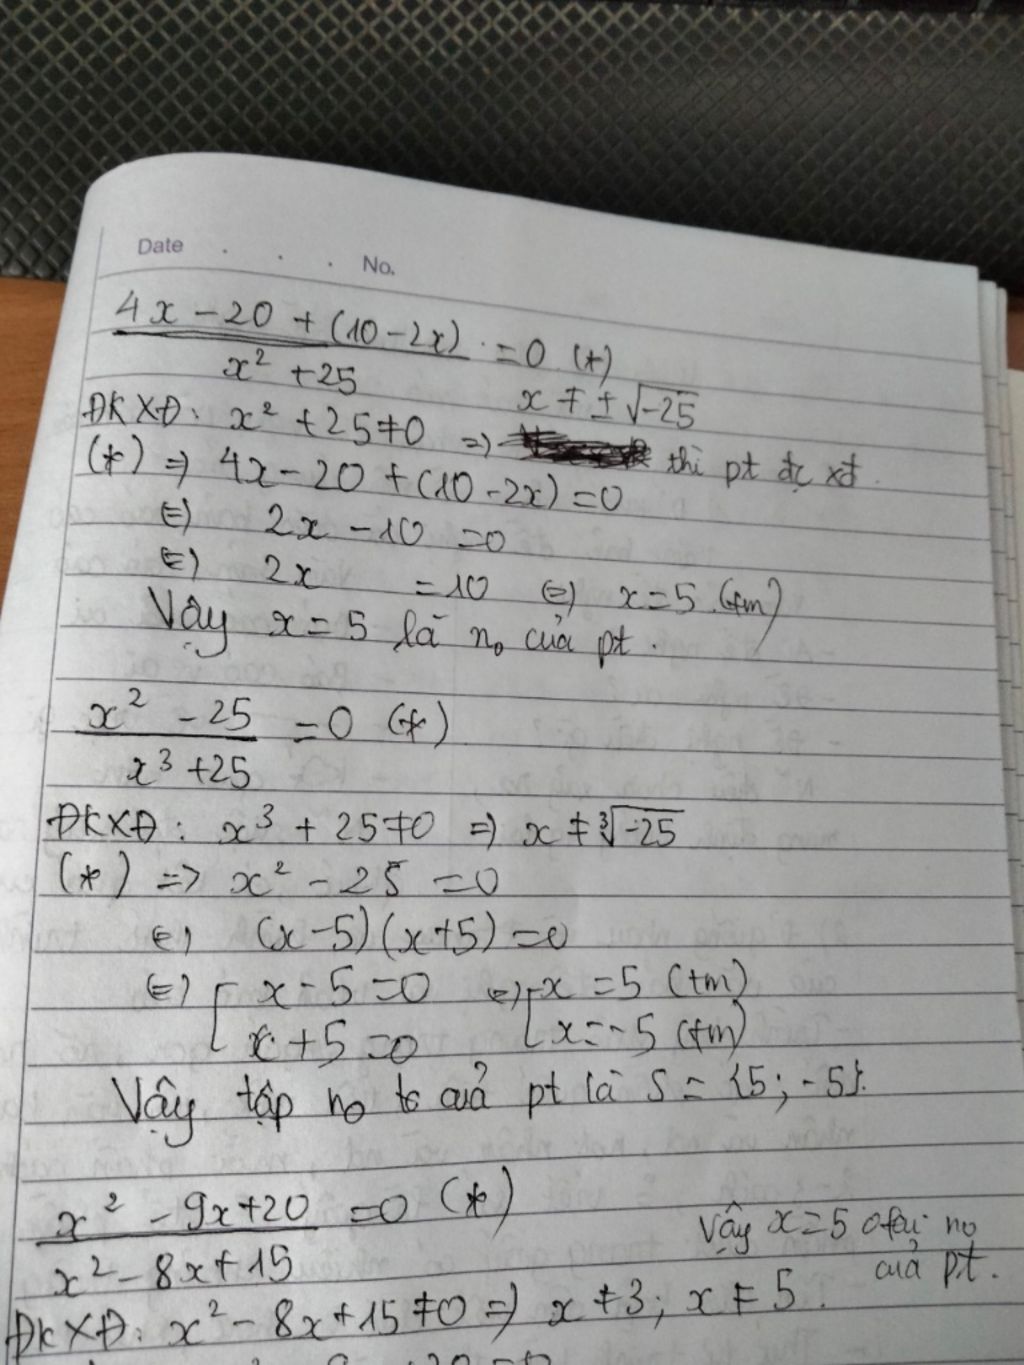 Date . . . No.
4x - 20 + (10 - 2x) = 0 (*)
x² + 25
ĐKXĐ: x² + 25 ≠ 0 => x ≠ ± √-25 thì pt đc xđ.
(*) => 4x - 20 + (10 - 2x) = 0
(=) 2x - 10 = 0
(=) 2x = 10 (=) x = 5 (tm)
Vậy x = 5 là no của pt.
x² - 25 = 0 (*)
x³ + 25
ĐKXĐ: x³ + 25 ≠ 0 => x ≠ ³√-25
(*) => x² - 25 = 0
(=) (x - 5)(x + 5) = 0
(=) [ x - 5 = 0 (=) [ x = 5 (tm)
x + 5 = 0 x = -5 (tm)
Vậy tập no của pt là S = {5; -5}.
x² - 9x + 20 = 0 (*)
x² - 8x + 15
Vậy x = 5 no
của pt.
ĐKXĐ: x² - 8x + 15 ≠ 0 => x ≠ 3; x ≠ 5.